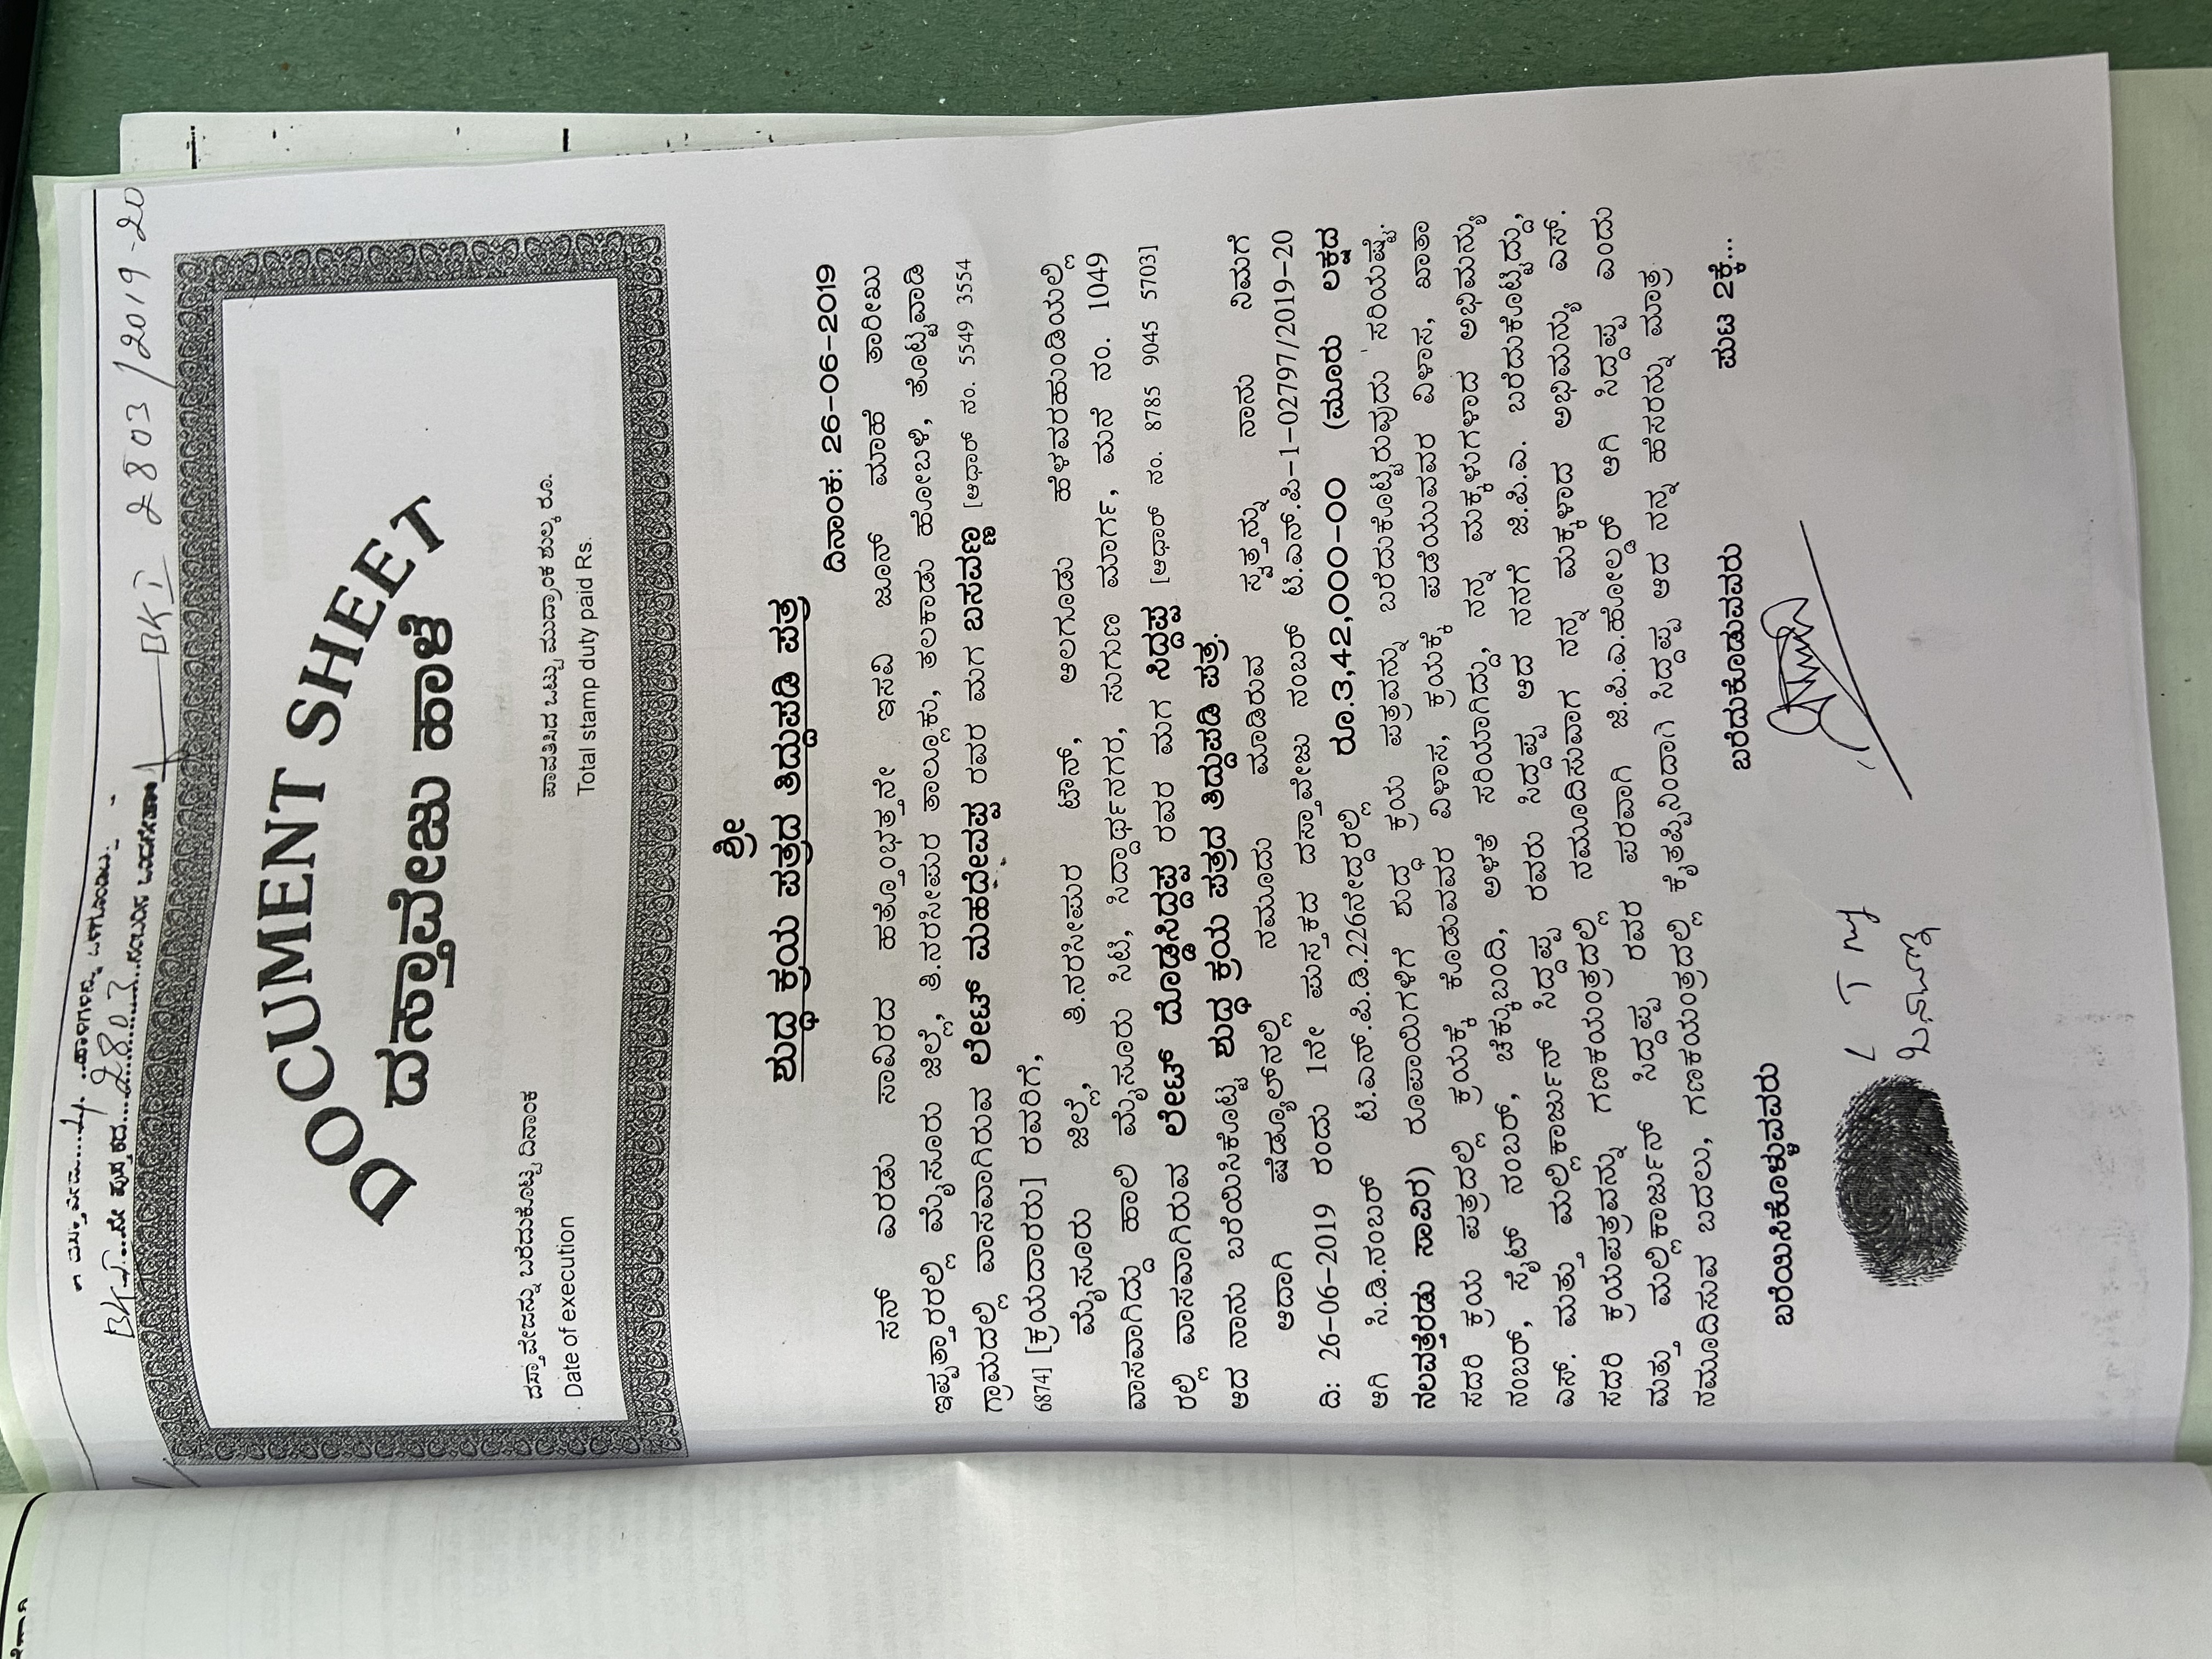 ದಸ್ತಾವೇಜು....4...ಹಾಳೆಗಳನ್ನು ಒಳಗೊಂಡಿದೆ
BK I...ನೇ ಪುಸ್ತಕದ....2803....ನಂಬರಿನ ಒಂದನೇ
BK I 2803/2019-20
DOCUMENT SHEET
ದಸ್ತಾವೇಜು ಹಾಳೆ
ದಸ್ತಾವೇಜನ್ನು ಬರೆದುಕೊಟ್ಟ ದಿನಾಂಕ ಪಾವತಿಸಿದ ಒಟ್ಟು ಮುದ್ರಾಂಕ ಶುಲ್ಕ ರೂ.
Date of execution Total stamp duty paid Rs.
ಶ್ರೀ
ಶುದ್ಧ ಕ್ರಯ ಪತ್ರದ ತಿದ್ದುಪಡಿ ಪತ್ರ
ದಿನಾಂಕ: 26-06-2019
ಸನ್ ಎರಡು ಸಾವಿರದ ಹತ್ತೊಂಭತ್ತನೇ ಇಸವಿ ಜೂನ್ ಮಾಹೆ ತಾರೀಖು
ಇಪ್ಪತ್ತಾರರಲ್ಲಿ ಮೈಸೂರು ಜಿಲ್ಲೆ, ತಿ.ನರಸೀಪುರ ತಾಲ್ಲೂಕು, ತಲಕಾಡು ಹೋಬಳಿ, ತೊಟ್ಟವಾಡಿ
ಗ್ರಾಮದಲ್ಲಿ ವಾಸವಾಗಿರುವ ಲೇಟ್ ಮಹದೇವಪ್ಪ ರವರ ಮಗ ಬಸವಣ್ಣ [ಆಧಾರ್ ನಂ. 5549 3554
6874] [ಕ್ರಯದಾರರು] ರವರಿಗೆ,
ಮೈಸೂರು ಜಿಲ್ಲೆ, ತಿ.ನರಸೀಪುರ ಟೌನ್, ಆಲಗೂಡು ಹೆಳವರಹುಂಡಿಯಲ್ಲಿ
ವಾಸವಾಗಿದ್ದು ಹಾಲಿ ಮೈಸೂರು ಸಿಟಿ, ಸಿದ್ಧಾರ್ಥನಗರ, ಸುಗುಣ ಮಾರ್ಗ, ಮನೆ ನಂ. 1049
ರಲ್ಲಿ ವಾಸವಾಗಿರುವ ಲೇಟ್ ದೊಡ್ಡಸಿದ್ದಪ್ಪ ರವರ ಮಗ ಸಿದ್ದಪ್ಪ [ಆಧಾರ್ ನಂ. 8785 9045 5703]
ಆದ ನಾನು ಬರೆಯಿಸಿಕೊಟ್ಟ ಶುದ್ಧ ಕ್ರಯ ಪತ್ರದ ತಿದ್ದುಪಡಿ ಪತ್ರ.
ಆದಾಗಿ ಷೆಡ್ಯೂಲ್‌ನಲ್ಲಿ ನಮೂದು ಮಾಡಿರುವ ಸ್ವತ್ತನ್ನು ನಾನು ನಿಮಗೆ
ದಿ: 26-06-2019 ರಂದು 1ನೇ ಪುಸ್ತಕದ ದಸ್ತಾವೇಜು ನಂಬರ್ ಟಿ.ಎನ್.ಪಿ-1-02797/2019-20
ಆಗಿ ಸಿ.ಡಿ.ನಂಬರ್ ಟಿ.ಎನ್.ಪಿ.ಡಿ.226ನೇದ್ದರಲ್ಲಿ ರೂ.3,42,000-00 (ಮೂರು ಲಕ್ಷದ
ನಲವತ್ತೆರಡು ಸಾವಿರ) ರೂಪಾಯಿಗಳಿಗೆ ಶುದ್ಧ ಕ್ರಯ ಪತ್ರವನ್ನು ಬರೆದುಕೊಟ್ಟಿರುವುದು ಸರಿಯಷ್ಟೆ.
ಸದರಿ ಕ್ರಯ ಪತ್ರದಲ್ಲಿ ಕ್ರಯಕ್ಕೆ ಕೊಡುವವರ ವಿಳಾಸ, ಕ್ರಯಕ್ಕೆ ಪಡೆಯುವವರ ವಿಳಾಸ, ಖಾತಾ
ನಂಬರ್, ಸೈಟ್ ನಂಬರ್, ಚೆಕ್ಕುಬಂದಿ, ಅಳತೆ ಸರಿಯಾಗಿದ್ದು, ನನ್ನ ಮಕ್ಕಳುಗಳಾದ ಅಭಿಮನ್ಯು
ಎಸ್. ಮತ್ತು ಮಲ್ಲಿಕಾರ್ಜುನ್ ಸಿದ್ದಪ್ಪ ರವರು ಸಿದ್ದಪ್ಪ ಆದ ನನಗೆ ಜಿ.ಪಿ.ಎ. ಬರೆದುಕೊಟ್ಟಿದ್ದು,
ಸದರಿ ಕ್ರಯಪತ್ರವನ್ನು ಗಣಕಯಂತ್ರದಲ್ಲಿ ನಮೂದಿಸುವಾಗ ನನ್ನ ಮಕ್ಕಳಾದ ಅಭಿಮನ್ಯು ಎಸ್.
ಮತ್ತು ಮಲ್ಲಿಕಾರ್ಜುನ್ ಸಿದ್ದಪ್ಪ ರವರ ಪರವಾಗಿ ಜಿ.ಪಿ.ಎ.ಹೋಲ್ಡರ್ ಆಗಿ ಸಿದ್ದಪ್ಪ ಎಂದು
ನಮೂದಿಸುವ ಬದಲು, ಗಣಕಯಂತ್ರದಲ್ಲಿ ಕೈತಪ್ಪಿನಿಂದಾಗಿ ಸಿದ್ದಪ್ಪ ಆದ ನನ್ನ ಹೆಸರನ್ನು ಮಾತ್ರ
ಪುಟ 2ಕ್ಕೆ...
ಬರೆಯಿಸಿಕೊಳ್ಳುವವರು ಬರೆದುಕೊಡುವವರು
L T M
ಬಸವಣ್ಣ